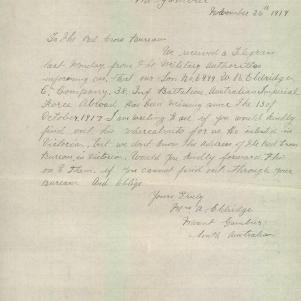 Mt Gambier
November 26th 1917
To The Red Cross Bureau
We received a Telegram
last Monday from the Military Authorities
informing us that our Son No 6994 W. B. Eldridge
C. Company, 38, Inf Battalion, Australian Imperial
Force Abroad, has been missing since the 13 of
October, 1917 I am writing to ask if you would kindly
find out his whereabouts for us he enlisted in
Victorian, but we don't know the address of the Red Cross
Bureau in Victoria. Would you kindly forward this
on to them, if you cannot find out through your
Bureau And Oblige
Yours Truly
Mrs A. Eldridge
Mount Gambier
South Australian